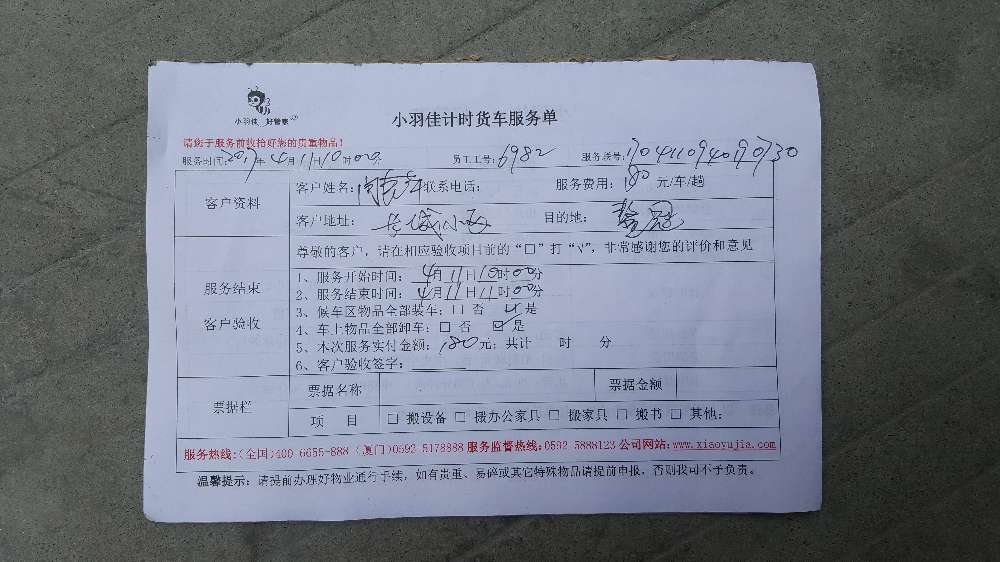 小羽佳 好管家
小羽佳计时货车服务单
请您于服务前收拾好您的贵重物品!
服务时间:2017年4月11日10时00分 员工工号:6982 服务联号:
客户资料
客户姓名: 联系电话: 服务费用:180元/车/趟
客户地址:长城小区 目的地:
服务结束
客户验收
尊敬的客户,请在相应验收项目前的“□”打“√”,非常感谢您的评价和意见
1、服务开始时间:4月11日10时00分
2、服务结束时间:4月11日11时00分
3、候车区物品全部装车:□ 否 ☑ 是
4、车上物品全部卸车:□ 否 ☑ 是
5、本次服务实付金额:180元;共计 时 分
6、客户验收签字:
票据栏
票据名称 票据金额
项 目 □ 搬设备 □ 搬办公家具 □ 搬家具 □ 搬书 □ 其他:
服务热线:(全国)400-6655-888 (厦门)0592-5178888 服务监督热线:0592-5888123 公司网站:www.xiaoyujia.com
温馨提示:请提前办理好物业通行手续,如有贵重、易碎或其它特殊物品请提前申报,否则我司不予负责。